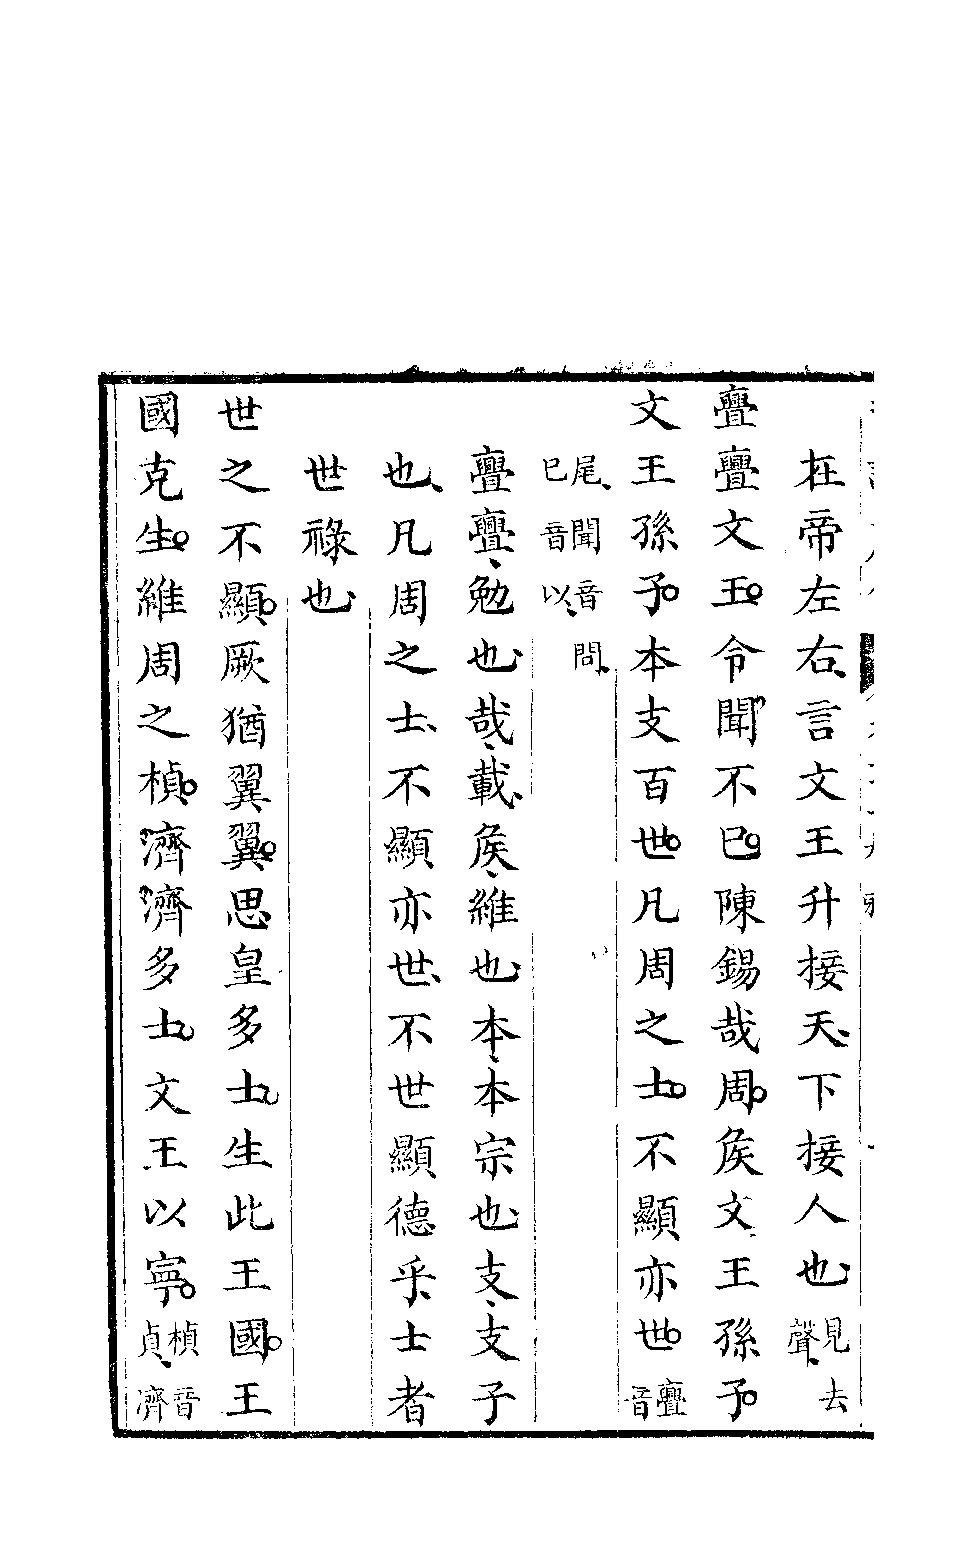 在帝左右言文王升接天下接人也見去聲
亹亹文王令聞不已陳錫哉周侯文王孫子
文王孫子本支百世凡周之士不顯亦世亹音
尾聞音問已音以
亹亹勉也哉載侯維也本本宗也支支子
也凡周之士不顯亦世不世顯德乎士者
世祿也
世之不顯厥猶翼翼思皇多士生此王國王
國克生維周之楨濟濟多士文王以寧楨音貞濟